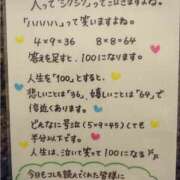 人って「シクシク」って泣きますよね。
「ハハハハ」って笑いますよね。
4×9=36 8×8=64
答えを足すと、100になります。
人生を「100」とすると、
悲しいことは"36"、嬉しいことは"64"で
倍近くあります。
どんなに号泣(5×9=45)しても
半分以下です。
人生は、泣いて笑って100になる
今日もコレを読んでくれた皆様に